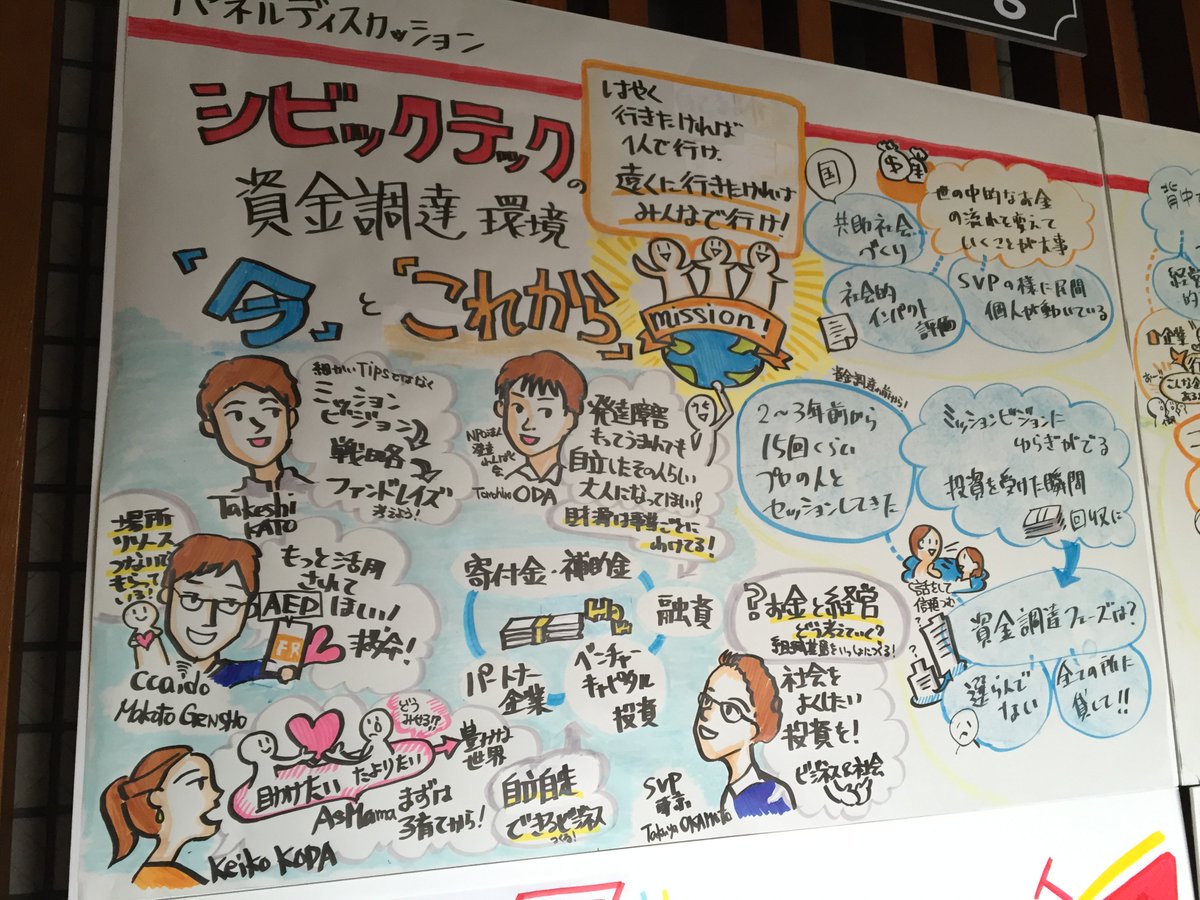 パネルディスカッション
シビックテックの
資金調達 環境
「今」と「これから」
はやく
行きたければ
1人で行け.
遠くに行きたければ
みんなで行け!
mission!
国
共助社会
づくり
世の中的なお金
の流れを変えて
いくことが大事
社会的
インパクト
評価
SVPの様に民間
個人が動いている
細かいTipsではなく
ミッション
ビジョン
戦略
ファンドレイズ
考えよう!
Takeshi
KATO
NPO法人
ODA
発達障害
もってうまれても
自立したその人らしい
大人になってほしい?
財源は事業ごとに
わけてる!
資金調達の前から!
2〜3年前から
15回くらい
プロの人と
セッションしてきた
ミッションビジョンに
ゆらぎがでる
投資を受けた瞬間
回収に
場所
リソース
つないで
もらって
いる!
もっと活用
されて
ほしい!
AED
FR
Ccaido
Makoto GENSHO
寄付金・補助金
融資
パートナー
企業
ベンチャー
キャピタル
投資
?お金と経営
どう考えていく?
話をして
信頼つむ
資金調達フェーズは?
選らんで
ない
全ての所に
貸して!!
どう
みせる!?
助けたい
たよりたい
豊かな
世界
AsMama
まずは
子育てから!
Keiko KODA
自立自走
できるビジネス
つくる!
社会を
よくしたい
投資を!
ビジネス&社会
SVP
東京
Takuya OKAMOTO
背中
経営
的
企業
こんな